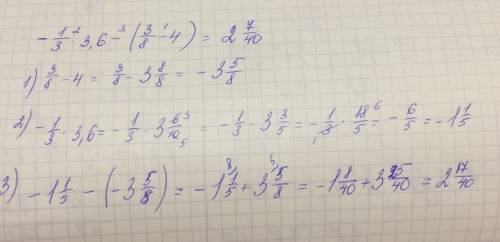 - 1/3 ·² 3,6 -³ (3/8 -¹ 4) = 2 7/40
1) 3/8 - 4 = 3/8 - 3 8/8 = - 3 5/8
2) - 1/3 · 3,6 = - 1/3 · 3 6³/10₅ = - 1/3 · 3 3/5 = - 1/3₁ · 18⁶/5 = - 6/5 = - 1 1/5
3) - 1 1/5 - (- 3 5/8) = - 1 ⁸1/5 + 3 ⁵5/8 = - 1 8/40 + 3 25/40 = 2 17/40